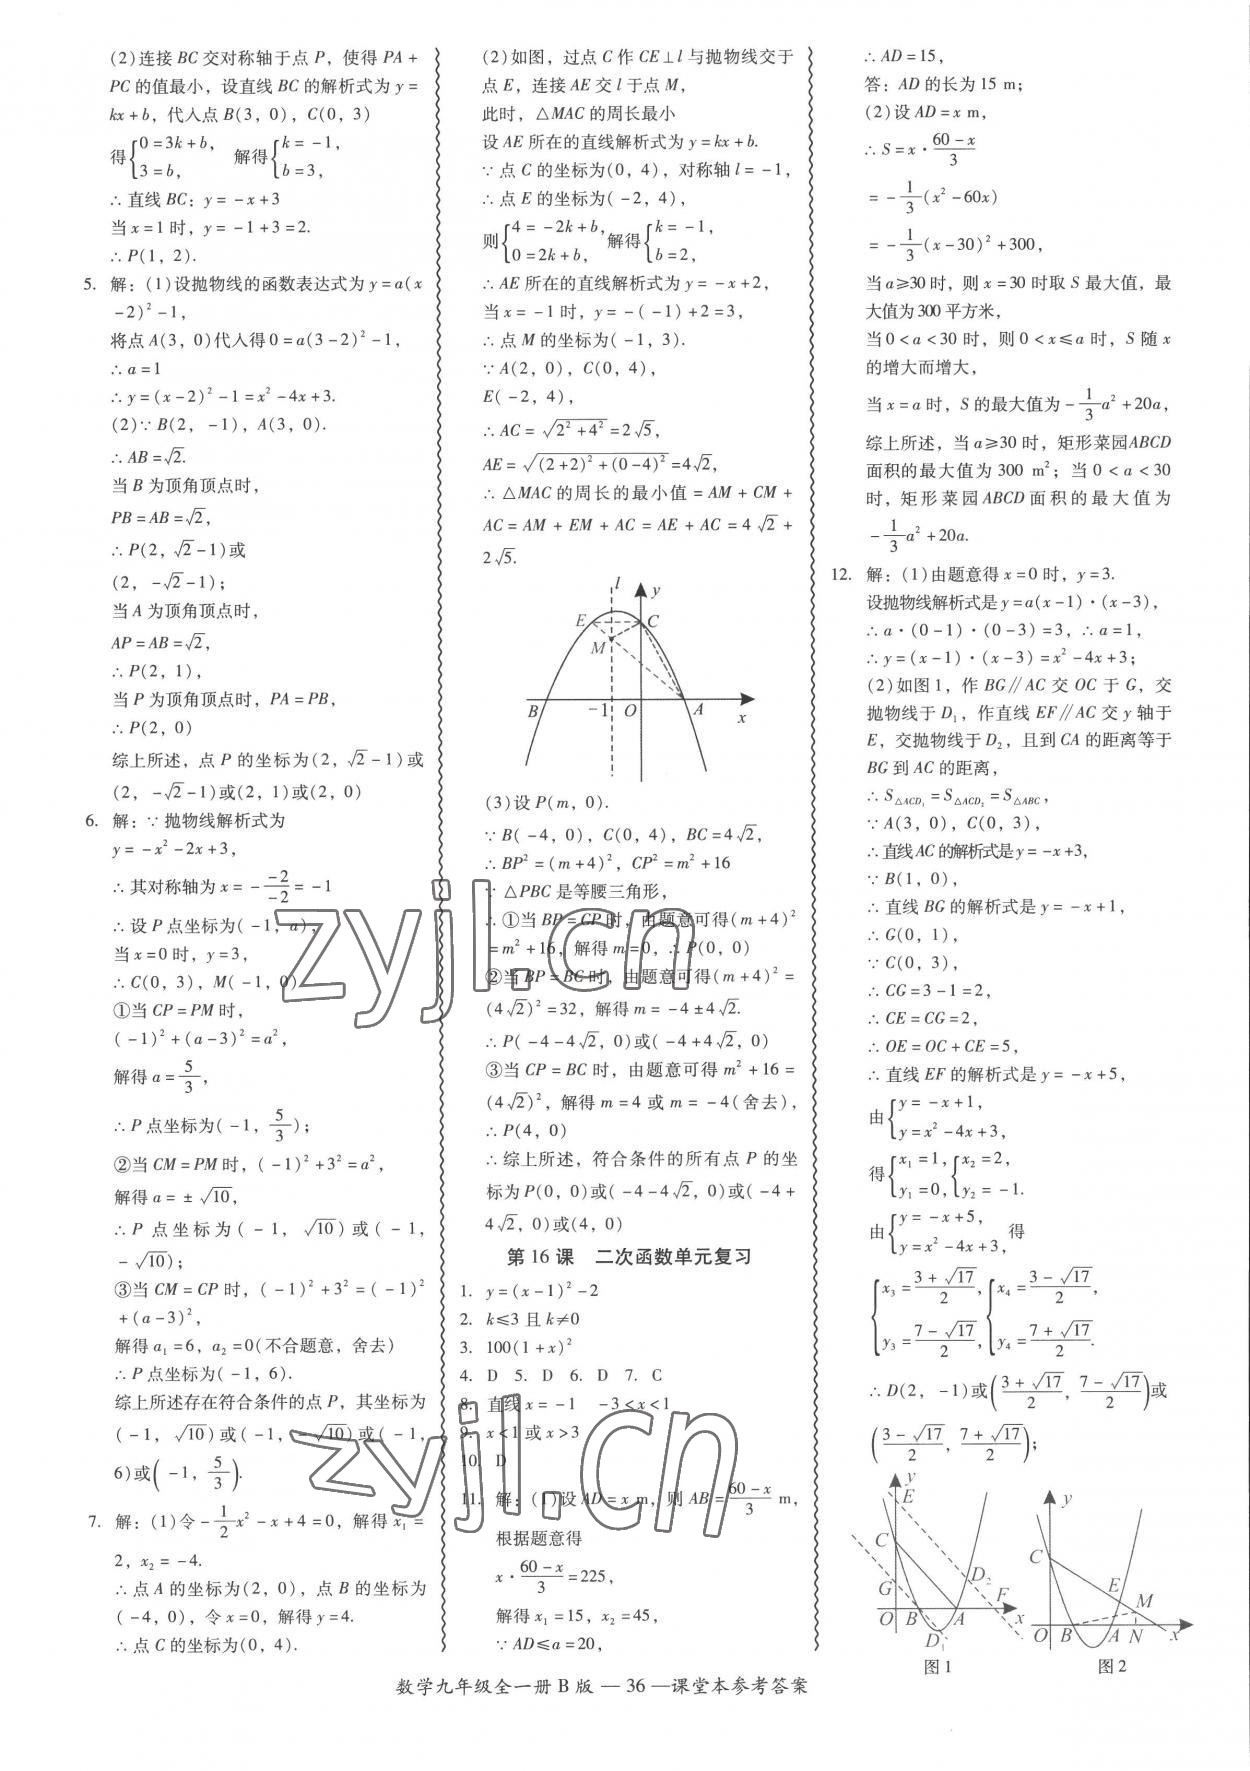 (2)连接 BC 交对称轴于点 P，使得 PA +
PC 的值最小，设直线 BC 的解析式为 y =
kx + b，代入点 B(3, 0), C(0, 3)
得{0 = 3k + b, 3 = b, 解得{k = -1, b = 3,
∴ 直线 BC: y = -x + 3
当 x = 1 时，y = -1 + 3 = 2.
∴ P(1, 2).
5. 解：(1)设抛物线的函数表达式为 y = a(x
-2)² - 1,
将点 A(3, 0)代入得 0 = a(3 - 2)² - 1,
∴ a = 1
∴ y = (x - 2)² - 1 = x² - 4x + 3.
(2)∵ B(2, -1), A(3, 0).
∴ AB = √2.
当 B 为顶角顶点时，
PB = AB = √2,
∴ P(2, √2 - 1)或
(2, -√2 - 1);
当 A 为顶角顶点时，
AP = AB = √2,
∴ P(2, 1),
当 P 为顶角顶点时，PA = PB,
∴ P(2, 0)
综上所述，点 P 的坐标为(2, √2 - 1)或
(2, -√2 - 1)或(2, 1)或(2, 0)
6. 解：∵ 抛物线解析式为
y = -x² - 2x + 3,
∴ 其对称轴为 x = - -2/-2 = -1
∴ 设 P 点坐标为( -1, a),
当 x = 0 时，y = 3,
∴ C(0, 3), M( -1, 0)
①当 CP = PM 时，
( -1)² + (a - 3)² = a²,
解得 a = 5/3,
∴ P 点坐标为( -1, 5/3);
②当 CM = PM 时，( -1)² + 3² = a²,
解得 a = ±√10,
∴ P 点坐标为( -1, √10)或( -1,
-√10);
③当 CM = CP 时，( -1)² + 3² = ( -1)²
+ (a - 3)²,
解得 a₁ = 6, a₂ = 0(不合题意，舍去)
∴ P 点坐标为( -1, 6).
综上所述存在符合条件的点 P，其坐标为
( -1, √10)或( -1, -√10)或( -1,
6)或( -1, 5/3).
7. 解：(1)令 -1/2x² - x + 4 = 0, 解得 x₁ =
2, x₂ = -4.
∴ 点 A 的坐标为(2, 0), 点 B 的坐标为
( -4, 0), 令 x = 0, 解得 y = 4.
∴ 点 C 的坐标为(0, 4).
(2)如图，过点 C 作 CE⊥l 与抛物线交于
点 E，连接 AE 交 l 于点 M，
此时，△MAC 的周长最小
设 AE 所在的直线解析式为 y = kx + b.
∵ 点 C 的坐标为(0, 4), 对称轴 l = -1,
∴ 点 E 的坐标为( -2, 4),
则{4 = -2k + b, 0 = 2k + b, 解得{k = -1, b = 2,
∴ AE 所在的直线解析式为 y = -x + 2,
当 x = -1 时，y = -( -1) + 2 = 3,
∴ 点 M 的坐标为( -1, 3).
∵ A(2, 0), C(0, 4),
E( -2, 4),
∴ AC = √(2² + 4²) = 2√5,
AE = √((2 + 2)² + (0 - 4)²) = 4√2,
∴ △MAC 的周长的最小值 = AM + CM +
AC = AM + EM + AC = AE + AC = 4√2 +
2√5.
l y
E C
M
B -1 O A x
(3)设 P(m, 0).
∵ B( -4, 0), C(0, 4), BC = 4√2,
∴ BP² = (m + 4)², CP² = m² + 16
∵ △PBC 是等腰三角形，
∴ ①当 BP = CP 时，由题意可得(m + 4)²
= m² + 16, 解得 m = 0, ∴ P(0, 0)
②当 BP = BC 时，由题意可得(m + 4)² =
(4√2)² = 32, 解得 m = -4 ± 4√2.
∴ P( -4 - 4√2, 0)或( -4 + 4√2, 0)
③当 CP = BC 时，由题意可得 m² + 16 =
(4√2)², 解得 m = 4 或 m = -4(舍去),
∴ P(4, 0)
∴ 综上所述，符合条件的所有点 P 的坐
标为 P(0, 0)或( -4 - 4√2, 0)或( -4 +
4√2, 0)或(4, 0)
第 16 课 二次函数单元复习
1. y = (x - 1)² - 2
2. k≤3 且 k≠0
3. 100(1 + x)²
4. D 5. D 6. D 7. C
8. 直线 x = -1 -3 < x < 1
9. x < 1 或 x > 3
10. D
11. 解：(1)设 AD = x m, 则 AB = (60 - x)/3 m,
根据题意得
x · (60 - x)/3 = 225,
解得 x₁ = 15, x₂ = 45,
∵ AD≤a = 20,
∴ AD = 15,
答：AD 的长为 15 m;
(2)设 AD = x m,
∴ S = x · (60 - x)/3
= -1/3(x² - 60x)
= -1/3(x - 30)² + 300,
当 a≥30 时，则 x = 30 时取 S 最大值，最
大值为 300 平方米，
当 0 < a < 30 时，则 0 < x≤a 时，S 随 x
的增大而增大，
当 x = a 时，S 的最大值为 -1/3a² + 20a,
综上所述，当 a≥30 时，矩形菜园ABCD
面积的最大值为 300 m²；当 0 < a < 30
时，矩形菜园 ABCD 面积的最大值为
-1/3a² + 20a.
12. 解：(1)由题意得 x = 0 时，y = 3.
设抛物线解析式是 y = a(x - 1)·(x - 3),
∴ a·(0 - 1)·(0 - 3) = 3, ∴ a = 1,
∴ y = (x - 1)·(x - 3) = x² - 4x + 3;
(2)如图 1，作 BG∥AC 交 OC 于 G，交
抛物线于 D₁，作直线 EF∥AC 交 y 轴于
E，交抛物线于 D₂，且到 CA 的距离等于
BG 到 AC 的距离，
∴ S△ACD₁ = S△ACD₂ = S△ABC,
∵ A(3, 0), C(0, 3),
∴ 直线 AC 的解析式是 y = -x + 3,
∵ B(1, 0),
∴ 直线 BG 的解析式是 y = -x + 1,
∴ G(0, 1),
∵ C(0, 3),
∴ CG = 3 - 1 = 2,
∴ CE = CG = 2,
∴ OE = OC + CE = 5,
∴ 直线 EF 的解析式是 y = -x + 5,
由{y = -x + 1, y = x² - 4x + 3,
得{x₁ = 1, y₁ = 0, {x₂ = 2, y₂ = -1.
由{y = -x + 5, y = x² - 4x + 3, 得
{x₃ = (3 + √17)/2, y₃ = (7 - √17)/2, {x₄ = (3 - √17)/2, y₄ = (7 + √17)/2.
∴ D(2, -1)或((3 + √17)/2, (7 - √17)/2)或
((3 - √17)/2, (7 + √17)/2);
y E C G D₂ F O B A x D₁
图 1
y C E M O B A N x
图 2
数学九年级全一册 B 版 — 36 —课堂本参考答案
zyjl.cn
zyjl.cn